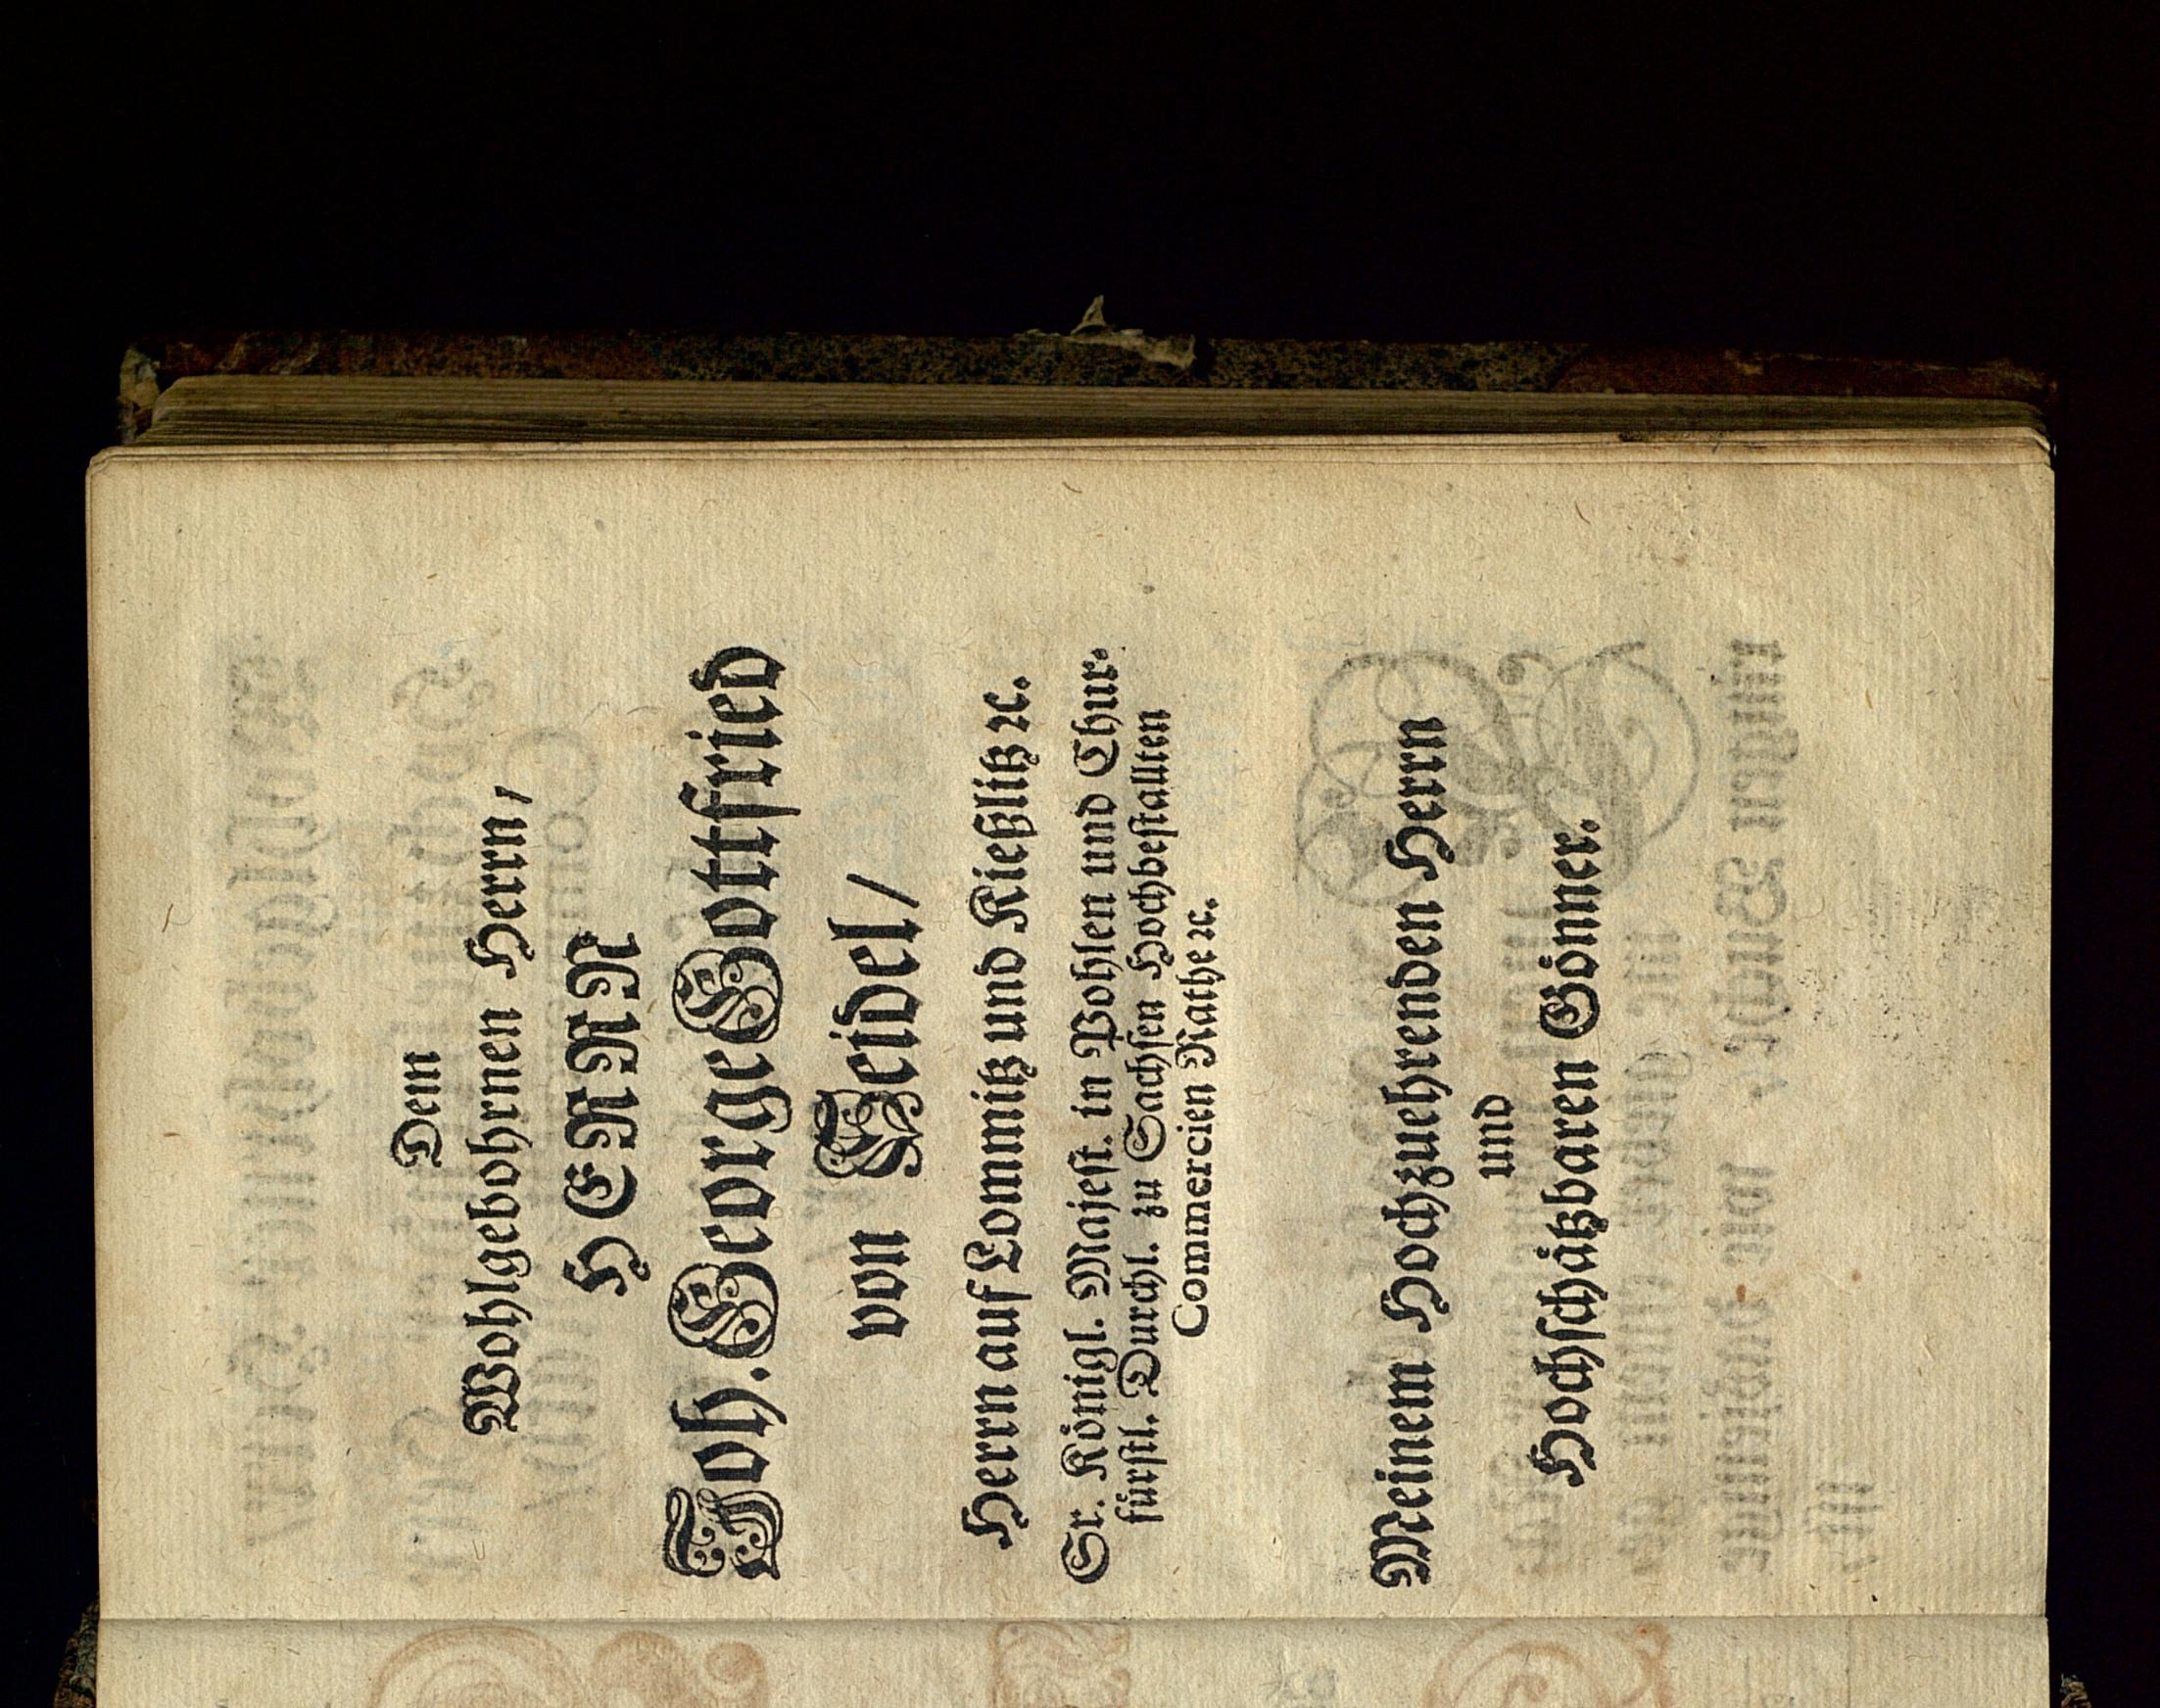 Dem
Wohlgebohrnen Herrn,
HERRN
Joh. George Gottfried
von Geidel/
Herrn auf Lomnitz und Kießlitz ꝛc.
Sr. Königl. Majest. in Pohlen und Chur-
fürstl. Durchl. zu Sachsen Hochbestallten
Commercien Rathe ꝛc.
Meinem Hochzuehrenden Herrn
und
Hochschätzbaren Gönner.